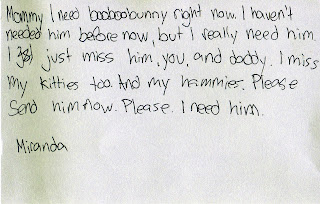 Mommy I need boobooobunny right now. I haven't
needed him before now, but I really need him.
I just miss him, you, and daddy. I miss
my kitties too. And my hammies. Please
Send him now. Please. I need him.
Miranda